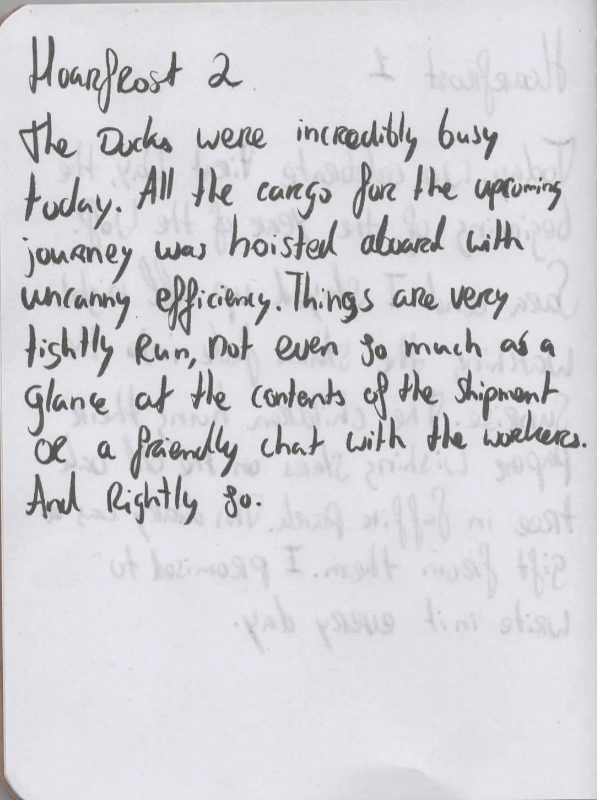 Hoarfrost 2
The Docks were incredibly busy
today. All the cargo for the upcoming
journey was hoisted aboard with
uncanny efficiency. Things are very
tightly run, not even so much as a
glance at the contents of the shipment
or a friendly chat with the workers.
And rightly so.